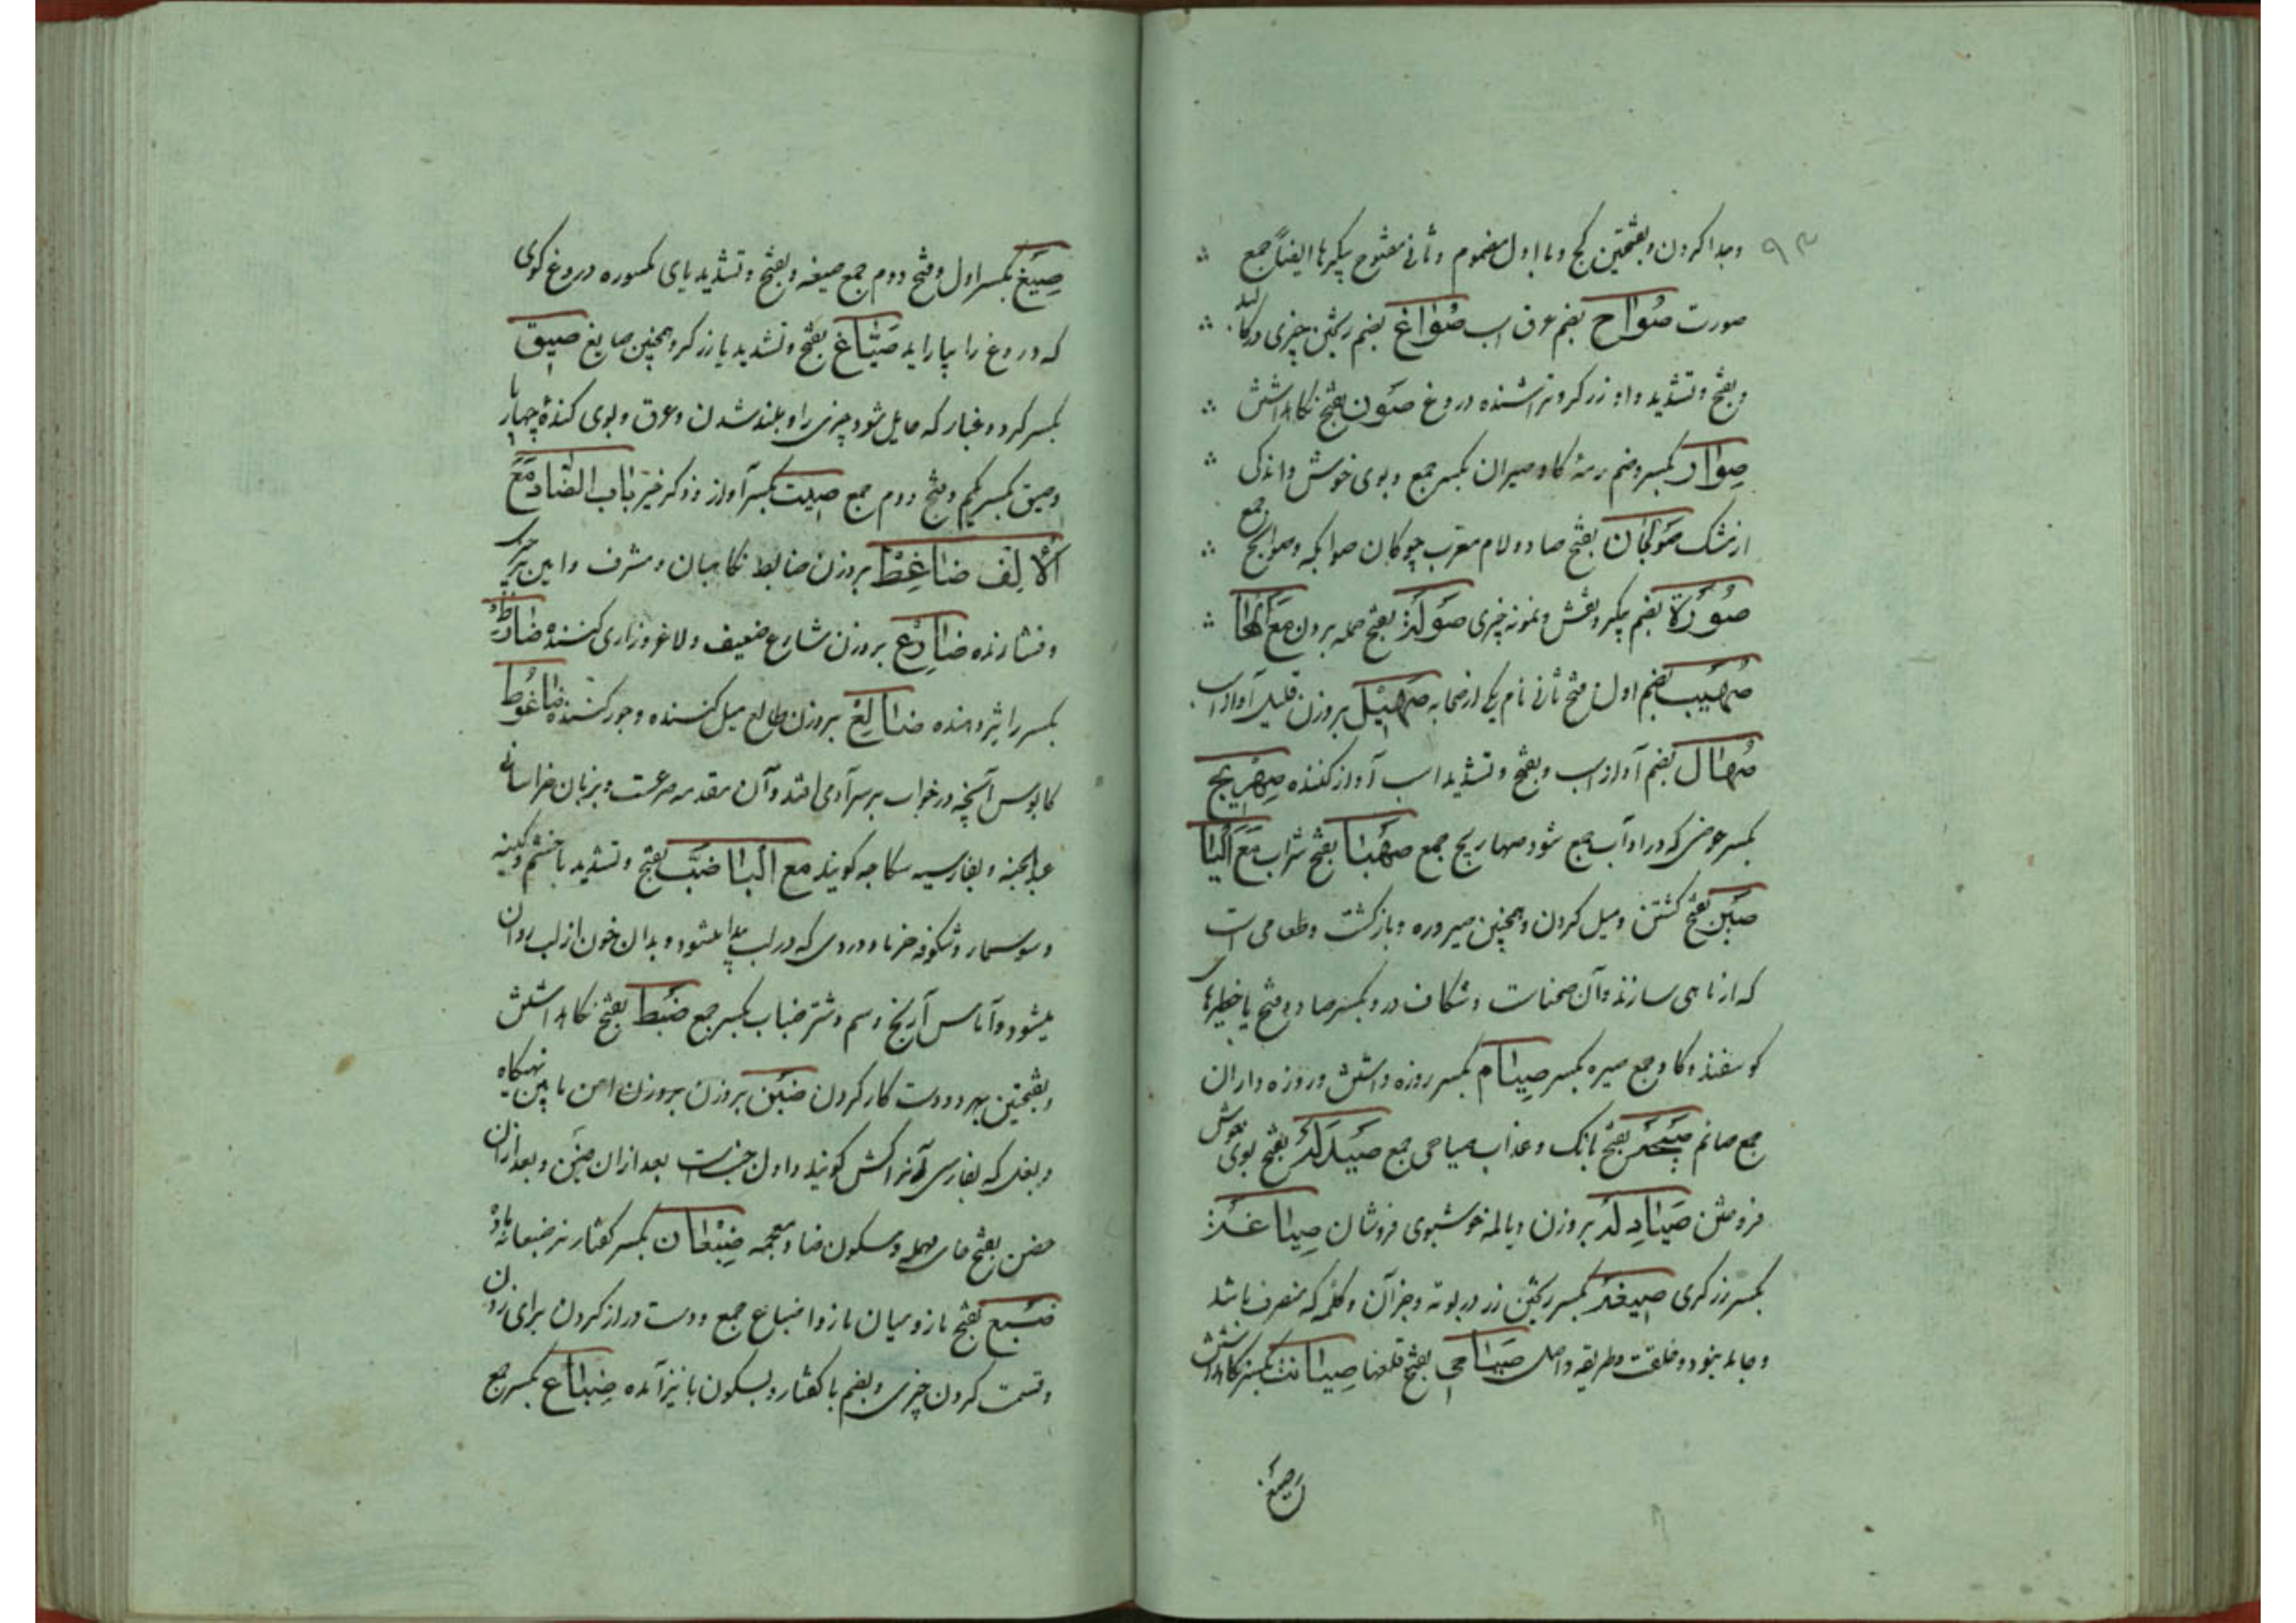 ۹۳
وجدا کردن و بفتحتین کج و با اول مضموم و ثانی مفتوح پیکرها ایضاً جمع
صورت صُوَاح بضم عرق اسپ صُوَاغ بضم ریختن چیزی در
و بفتح و تشدید واو زرکر و تراشنده دروغ صَون بفتح نکاه داشتن
صِوَار بکسر و ضم رمهٔ کاو صیران بکسر جمع و بوی خوش و اندکی
از مشک صَولجان بفتح صاد و لام معرب چوکان صوالجه و صوالج جمع
صُورَة بضم پیکر و نقش و نمونه چیزی صَولَة بفتح حمله بردن مَعَ الهَا
صُهَیب بضم اول و فتح ثانی نام یکی از صحابه صَهِیل بروزن قلیل آواز اسپ
صُهَال بضم آواز اسپ و بفتح و تشدید اسپ آواز کننده صِهرِیج
بکسر حوضی که در او آب جمع شود صهاریج جمع صَهبَا بفتح شراب مَعَ الیَا
بفتح کشتن و میل کردن و همچنین صیروره و بازکشت و طعامی است
که از ماهی سازند و آن صحنات و شکاف در و بکسر صاد و فتح یا خطیرهای
کوسفند و کاو جمع صیره بکسر صِیَام بکسر روزه داشتن و روزه داران
جمع صائم صَیحَة بفتح بانک و عذاب صیاحی جمع صَیدَلَة بفتح بوی خوش
فروختن صَیَادِلَة بروزن دیالمه خوشبوی فروشان صِیَاغَة
بکسر زرکری صیغَة بکسر ریختن زر در بوته و جز آن و کلمه که منصرف باشد
و جامد نبود و خلقت و طریقه و اصل صَیَاصِی بفتح قلعها صِیَانَت بکسر نکاه داشتن
صِیَغ
صِیَغ بکسر اول و فتح دوم جمع صیغه و بفتح و تشدید یای مکسوره دروغ کوی
که دروغ را بیاراید صَیَّاغ بفتح و تشدید یا زرکر و همچنین صایغ صیق
بکسر کرد و غبار که حایل شود چیزی را و بلند شدن و عرق و بوی کنده چهارپا
وصیق بکسر یکم و فتح دوم جمع صیت بکسر آواز و ذکر خیر بَاب الضَّاد مَعَ
الالِف ضَاغِط بروزن ضابط نکاهبان و مشرف و امین بر چیزی
و فشارنده ضَارِع بروزن شارع ضعیف و لاغر و زاری کننده
بکسر را ضَالِع بروزن طالع میل کننده و جور کننده ضَاغُوط
کابوس آنچه در خواب بر سر آدمی افتد و آن مقدمه صرعست و بزبان خراسانی
عبدالجنه و بفارسیه سکاجه کویند مع البَا ضَبّ بفتح و تشدید با خشم و کینه
و سوسمار و شکوفه خرما و دردی که در لب پیدا میشود و بدان خون از لب روان
میشود و آماس آرنج و سم و شتر ضباب بکسر جمع ضَبط بفتح نکاه داشتن
و بفتحتین بهر دو دست کار کردن ضَبن بروزن بروزن امن مابین تهیکاه
و بغل که بفارسی آنرا کش کویند و اول جنب است بعد ازان ضَبن و بعد ازان
حضن بفتح حای مهمله و سکون ضاد معجمه ضِبعَان بکسر کفتار نر ضبعانه ماده
ضَبع بفتح بازو میان بازو اضباع جمع و دست دراز کردن برای زدن
و قسمت کردن چیزی و بضم با کفتار و بسکون با نیز آمده ضِبَاع بکسر جمع